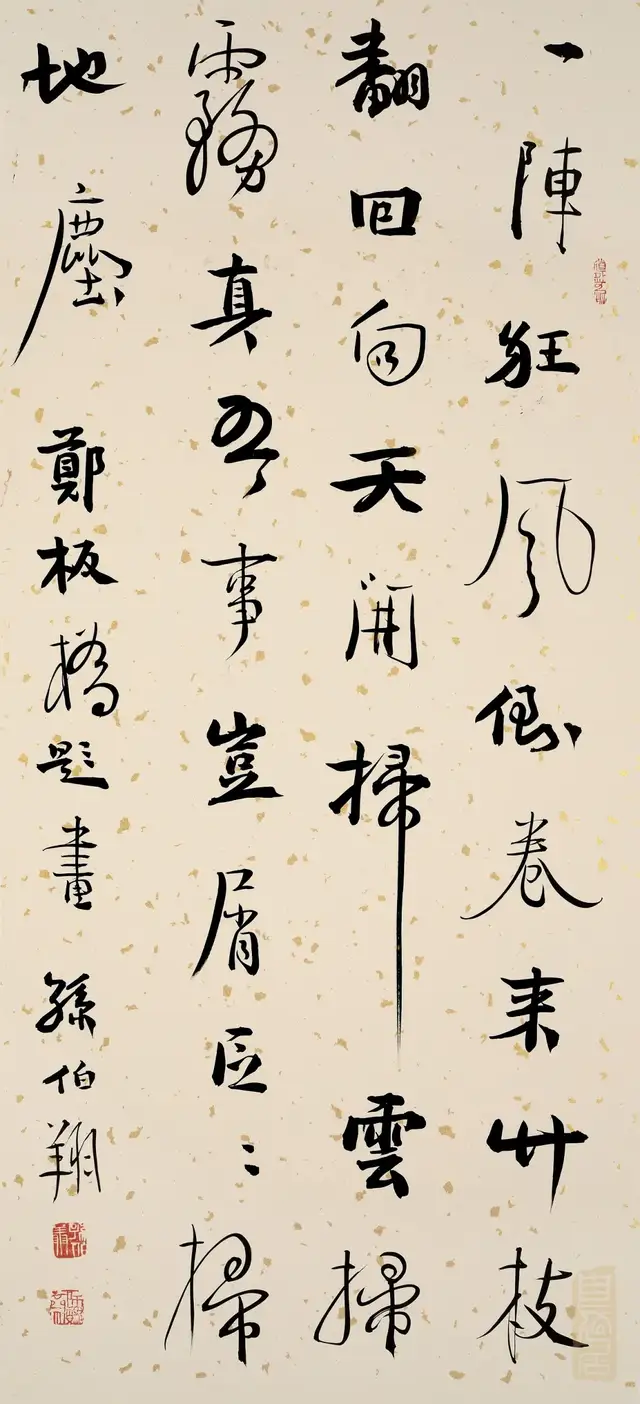 一陣狂風倒卷来竹枝
翻回向天開掃雲掃
霧真吾事豈屑區〻掃
地塵 鄭板橋題畫 孫伯翔